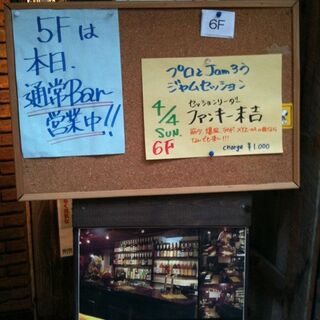 5Fは
本日、
通常Bar
営業中!!
6F
プロとJamろう
ジャムセッション
セッションリーダー
4/4
SUN.
6F
ファンキー末吉
charge ¥1,000